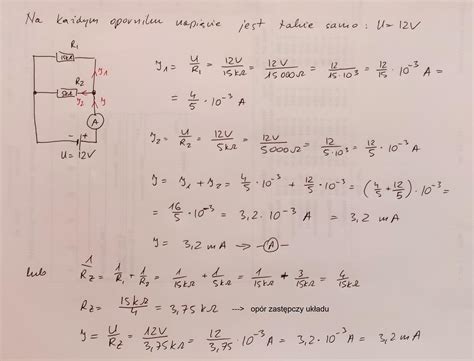 Na każdym oporniku napięcie jest takie samo: U = 12V
R₁
15kΩ
R₂
5kΩ
y₁
y₂
y
A
- +
U = 12V
y₁ = U/R₁ = 12V/15kΩ = 12V/15000Ω = 12/15·10³ = 12/15 · 10⁻³ A =
= 4/5 · 10⁻³ A
y₂ = U/R₂ = 12V/5kΩ = 12V/5000Ω = 12/5·10³ = 12/5 · 10⁻³ A
y = y₁ + y₂ = 4/5 · 10⁻³ + 12/5 · 10⁻³ = (4/5 + 12/5) · 10⁻³ =
= 16/5 · 10⁻³ = 3,2 · 10⁻³ A
y = 3,2 mA → -(A)-
lub 1/Rz = 1/R₁ + 1/R₂ = 1/15kΩ + 1/5kΩ = 1/15kΩ + 3/15kΩ = 4/15kΩ
Rz = 15kΩ/4 = 3,75 kΩ → opór zastępczy układu
y = U/Rz = 12V/3,75kΩ = 12/3,75 · 10⁻³ A = 3,2 · 10⁻³ A = 3,2 mA